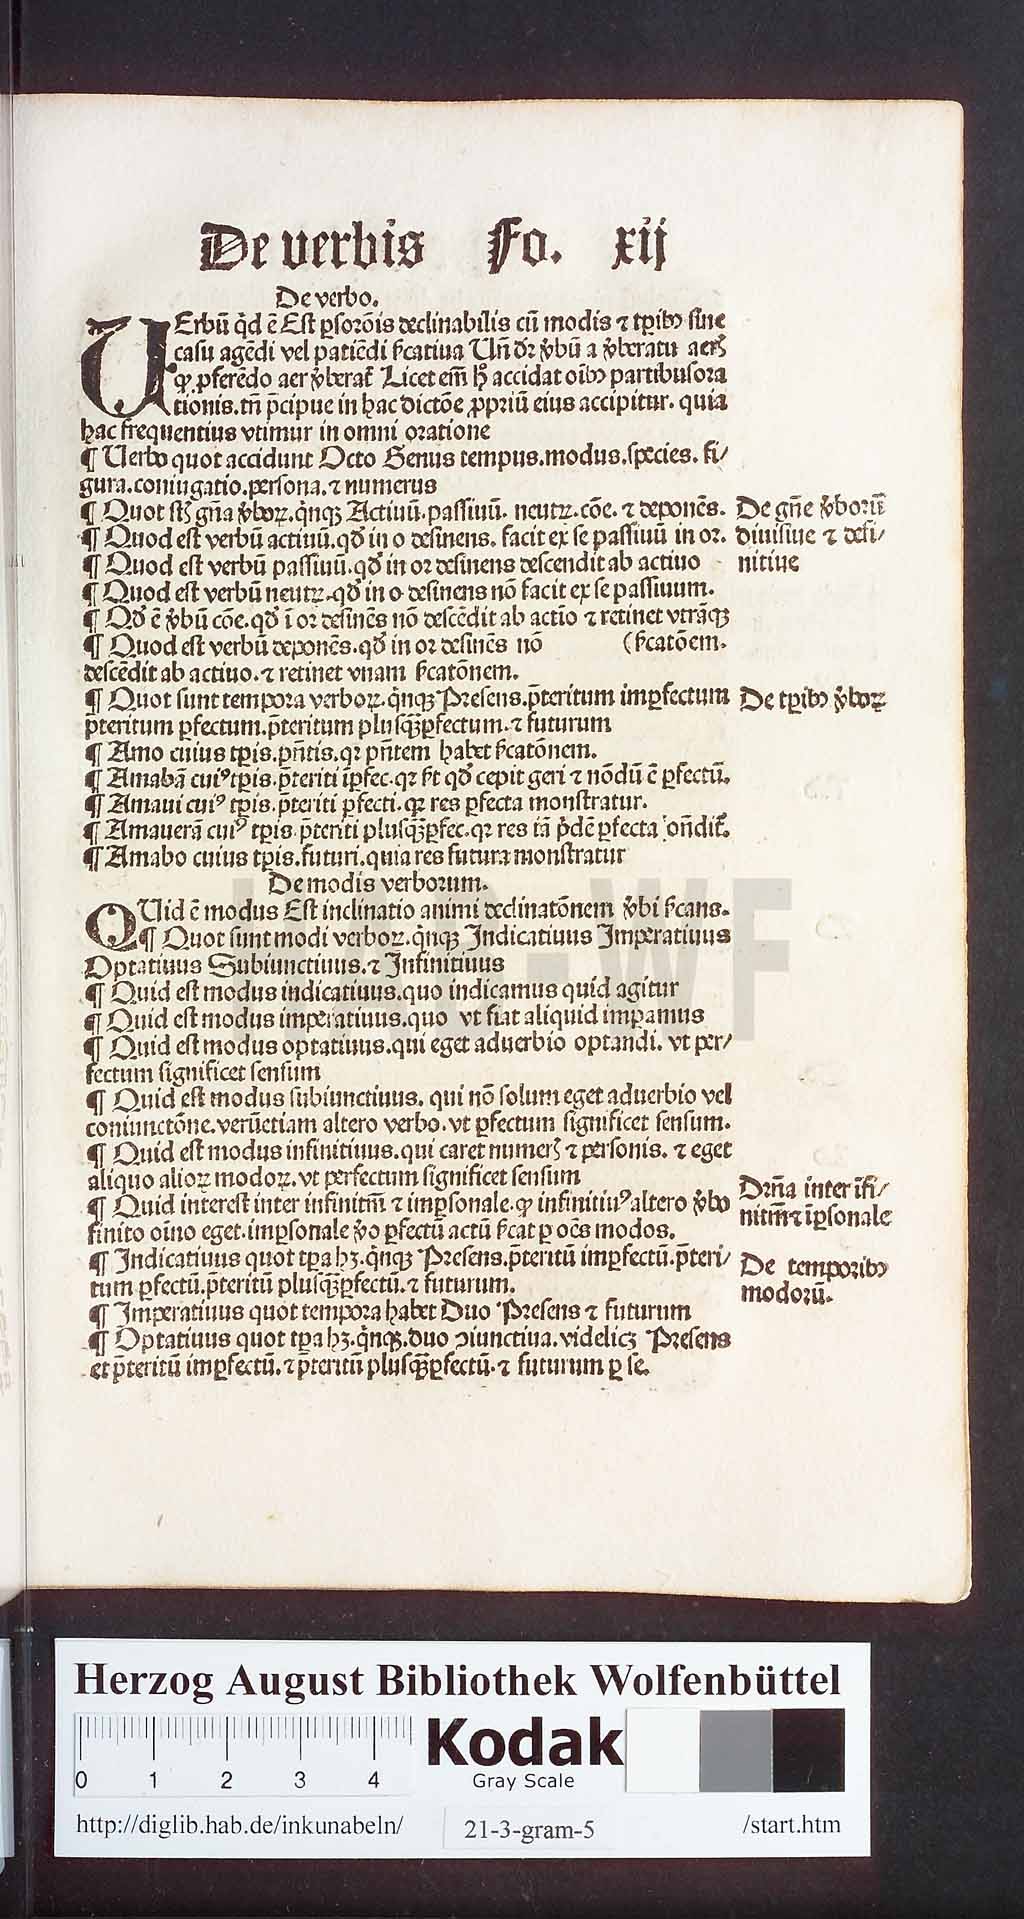 De verbis Fo. xij
De verbo.
VErbū q̇d ē Est ꝑsoꝛōis declinabilis cū modis ⁊ tꝑibꝰ sine
casu agēdi vel patiēdi
Licet em̄ accidat oībꝰ partibus oꝛa
tionis. tn̄ p̄cipue in hac dictōe ꝓpꝛiū eius accipitur. quia
hac frequentius vtimur in omni oꝛatione
¶ Uerbo quot accidunt Octo Genus tempus. modus. species. fi/
gura. coniugatio. persona. ⁊ numerus
¶ Quot gn̄a v̄boꝝ. q̇nqꝫ Actiuū. passiuū. neutꝝ. cōe. ⁊ deponēs.
De gn̄e v̄boꝛū
diuisiue ⁊ defi/
nitiue
¶ Quod est verbū actiuū. qđ in o desinens. facit ex se passiuū in oꝛ.
¶ Quod est verbū passiuū. qđ in oꝛ desinens descendit ab actiuo
¶ Quod est verbū neutꝝ. qđ in o desinens nō facit ex se passiuum.
¶ Qđ ē v̄bū cōe. qđ ī oꝛ desinēs nō descēdit ab actīo ⁊ retinet vtrāqꝫ
¶ Quod est verbū deponēs. qđ in oꝛ desinēs nō (ſ̄catōem.
descēdit ab actiuo. ⁊ retinet vnam ſ̄catōnem.
¶ Quot sunt tempoꝛa verboꝝ. q̇nqꝫ Pꝛesens. p̄teritum imꝑfectum
De tꝑibꝰ v̄boꝝ
p̄teritum ꝑfectum. p̄teritum plusqꝫ̄ꝑfectum. ⁊ futurum
¶ Amo cuius tꝑis. pn̄tis. qꝛ pn̄tem habet ſ̄catōnem.
¶ Amabā cuiꝰ tꝑis. p̄teriti īꝑfec. qꝛ ſ̄t qđ cepit geri ⁊ nōdū ē ꝑfectū.
¶ Amaui cuiꝰ tꝑis. p̄teriti ꝑfecti. qꝛ res ꝑfecta monstratur.
¶ Amauerā cuiꝰ tꝑis. p̄teriti plusqꝫ̄ꝑfec. qꝛ res iā p̄dē ꝑfecta on̄dit̄.
¶ Amabo cuius tꝑis. futuri. quia res futura monstratur
De modis verboꝛum.
QUid ē modus Est inclinatio animi declinatōnem v̄bi ſ̄cans.
¶ Quot sunt modi verboꝝ. q̇nqꝫ Indicatiuus Imperatiuus
Optatiuus Subiunctiuus. ⁊ Infinitiuus
¶ Quid est modus indicatiuus. quo indicamus quid agitur
¶ Quid est modus imperatiuus. quo vt fiat aliquid imꝑamus
¶ Quid est modus optatiuus. qui eget aduerbio optandi. vt per/
fectum significet sensum
¶ Quid est modus subiunctiuus. qui nō solum eget aduerbio vel
coniunctōne. verūetiam altero verbo. vt ꝑfectum significet sensum.
¶ Quid est modus infinitiuus. qui caret numeꝝ ⁊ personis. ⁊ eget
aliquo alioꝝ modoꝝ. vt perfectum significet sensum
¶ Quid interest inter infinitm̄ ⁊ imꝑsonale. ꝙ infinitiuꝰ altero v̄bo
Drn̄a inter īfi/
nitm̄ ⁊ īꝑsonale
finito oīno eget. imꝑsonale v̄o ꝑfectū actū ſ̄cat ꝑ oēs modos.
¶ Indicatiuus quot tꝑa hꝫ. q̇nqꝫ Pꝛesens. p̄teritū imꝑfectū. p̄teri/
De tempoꝛibꝰ
modoꝛū.
tum ꝑfectū. p̄teritū plusqꝫ̄ꝑfectū. ⁊ futurum.
¶ Imperatiuus quot tempoꝛa habet Duo Pꝛesens ⁊ futurum
¶ Optatiuus quot tꝑa hꝫ. q̇nqꝫ. duo ↄiunctiua. videlicꝫ Pꝛesens
et p̄teritū imꝑfectū. ⁊ p̄teritū plusqꝫ̄ꝑfectū. ⁊ futurum ꝑ se.
HAB-WF
Herzog August Bibliothek Wolfenbüttel
Kodak
Gray Scale
0 1 2 3 4
http://diglib.hab.de/inkunabeln/ 21-3-gram-5 /start.htm